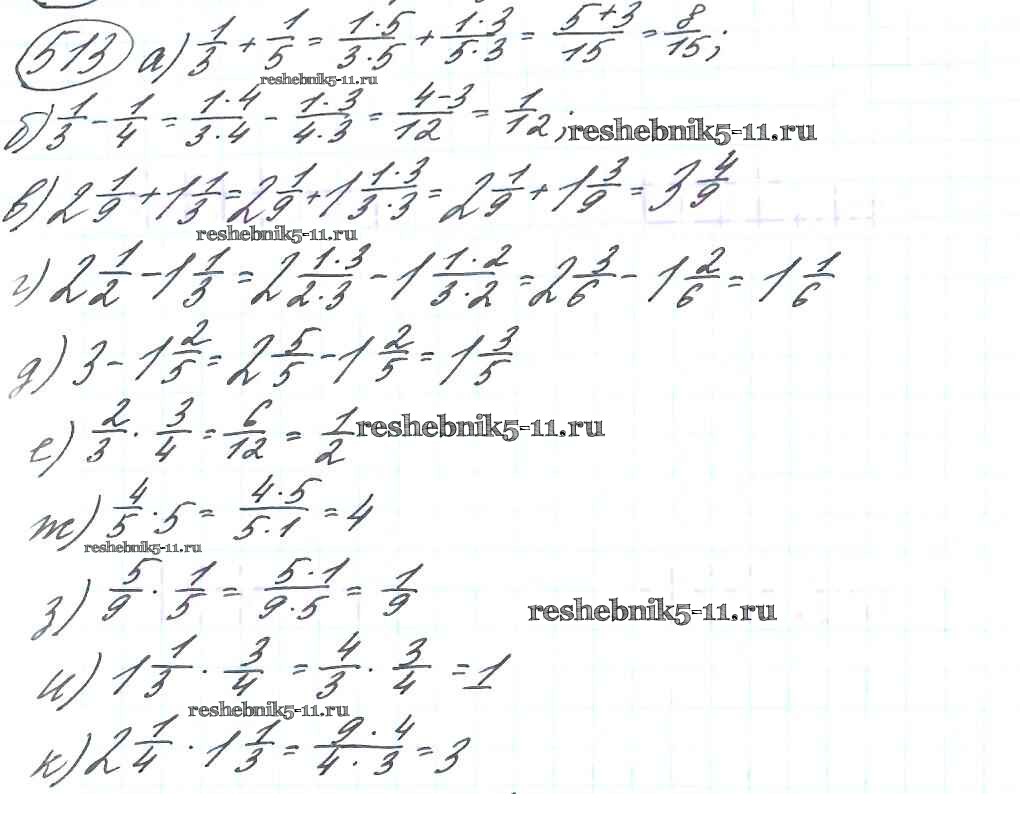 513 а) 1/3 + 1/5 = 1·5/3·5 + 1·3/5·3 = 5+3/15 = 8/15;
reshebnik5-11.ru
б) 1/3 - 1/4 = 1·4/3·4 - 1·3/4·3 = 4-3/12 = 1/12; reshebnik5-11.ru
в) 2 1/9 + 1 1/3 = 2 1/9 + 1 1·3/3·3 = 2 1/9 + 1 3/9 = 3 4/9
reshebnik5-11.ru
г) 2 1/2 - 1 1/3 = 2 1·3/2·3 - 1 1·2/3·2 = 2 3/6 - 1 2/6 = 1 1/6
д) 3 - 1 2/5 = 2 5/5 - 1 2/5 = 1 3/5
е) 2/3 · 3/4 = 6/12 = 1/2 reshebnik5-11.ru
ж) 4/5 · 5 = 4·5/5·1 = 4
reshebnik5-11.ru
з) 5/9 · 1/5 = 5·1/9·5 = 1/9
reshebnik5-11.ru
и) 1 1/3 · 3/4 = 4/3 · 3/4 = 1
reshebnik5-11.ru
к) 2 1/4 · 1 1/3 = 9·4/4·3 = 3